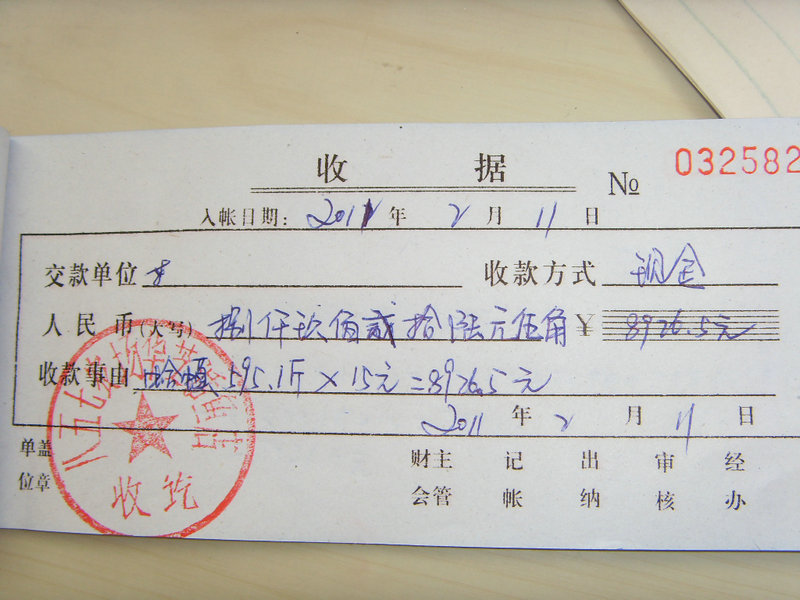 收 据
№ 032582
入帐日期: 2011 年 2 月 11 日
交款单位 收款方式 现金
人民币(大写) 捌仟玖佰贰拾陆元伍角 ¥ 8926.5元
收款事由 595.1斤×15元=8926.5元
2011 年 2 月 11 日
单位盖章
财会主管 记帐 出纳 审核 经办
收讫